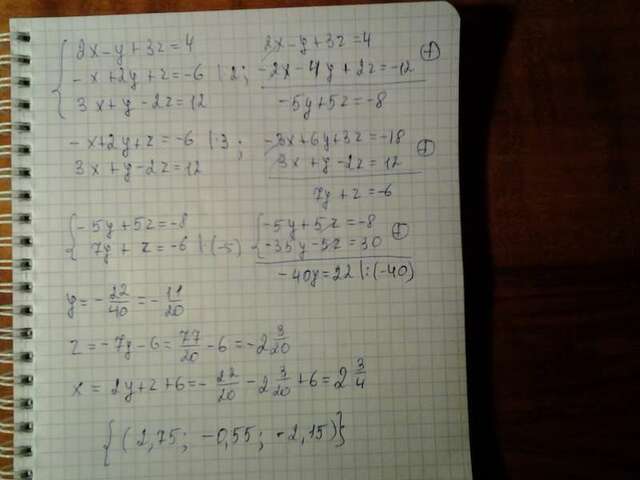 2x-y+3z=4 2x-y+3z=4 ⊕
-x+2y+z=-6 |·2; -2x-4y+2z=-12
3x+y-2z=12 -5y+5z=-8
-x+2y+z=-6 |·3; -3x+6y+3z=-18 ⊕
3x+y-2z=12 3x+y-2z=12
7y+z=-6
{-5y+5z=-8 {-5y+5z=-8 ⊕
7y+z=-6 |·(-5) -35y-5z=30
-40y=22 |:(-40)
y=-22/40=-11/20
z=-7y-6=77/20-6=-2 3/20
x=2y+z+6=-22/20-2 3/20+6=2 3/4
{(2,75; -0,55; -2,15)}